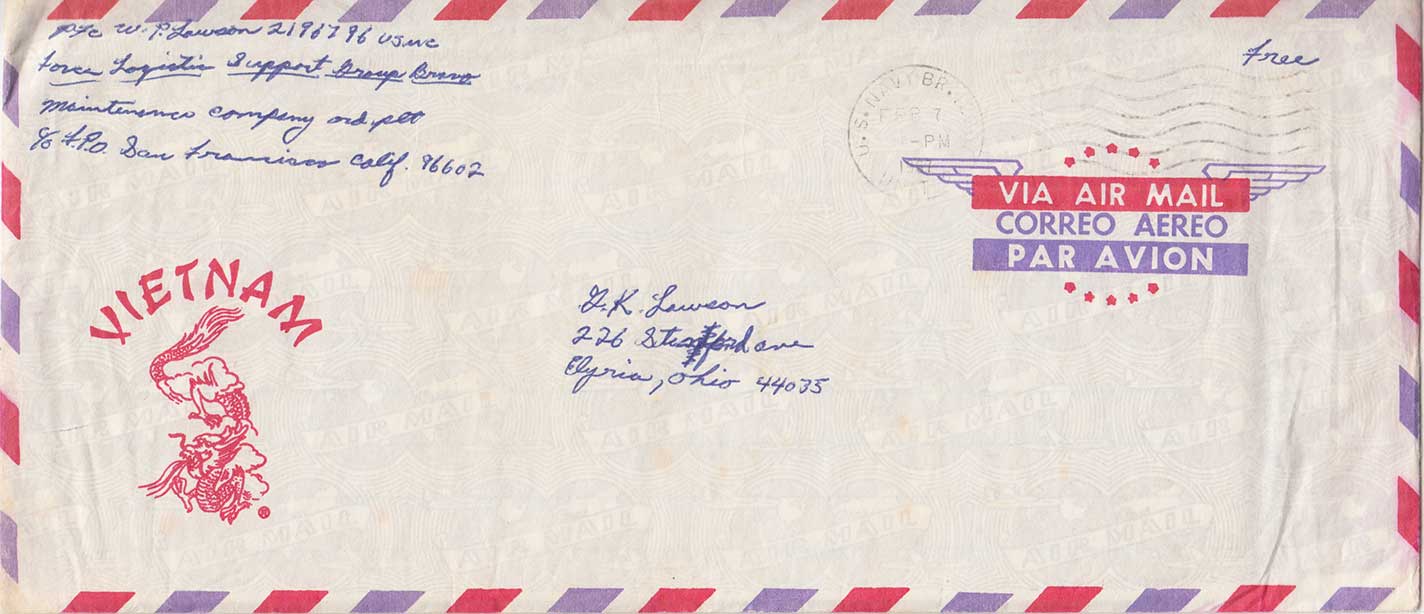 Pfc W. P. Lawson 2196796 USMC
Force Logistic Support Group Bravo
Maintenance Company ord. plt
c/o F.P.O. San Francisco Calif. 96602
Free
U.S. NAVY BR.
FEB 7
-PM
VIA AIR MAIL
CORREO AEREO
PAR AVION
VIETNAM
®
G. K. Lawson
226 Stanford ave
Elyria, Ohio 44035
AIR MAIL